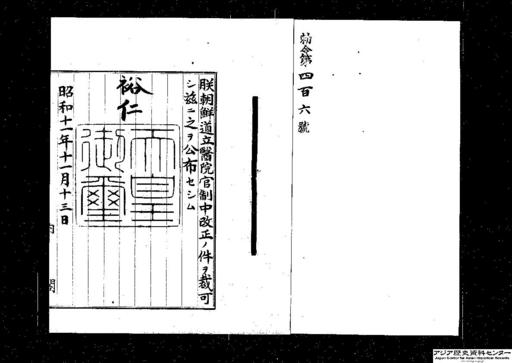 勅令第四百六號
朕朝鮮道立醫院官制中改正ノ件ヲ裁可
シ茲ニ之ヲ公布セシム
裕仁
天皇御璽
昭和十一年十一月十三日
内閣
アジア歴史資料センター
Japan Center for Asian Historical Records